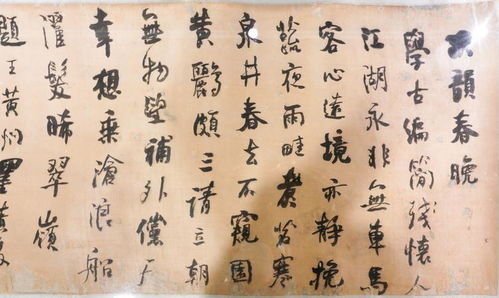 次韻春晚
學古編簡殘懷人
江湖永非無車馬
客心遠境亦靜挽
蔬夜雨畦煮茗寒
泉井春去不窺園
黃鸝頗三請立朝
無物望補外儻天
幸想乘滄浪船
濯髮晞翠嶺
題王黃州墨